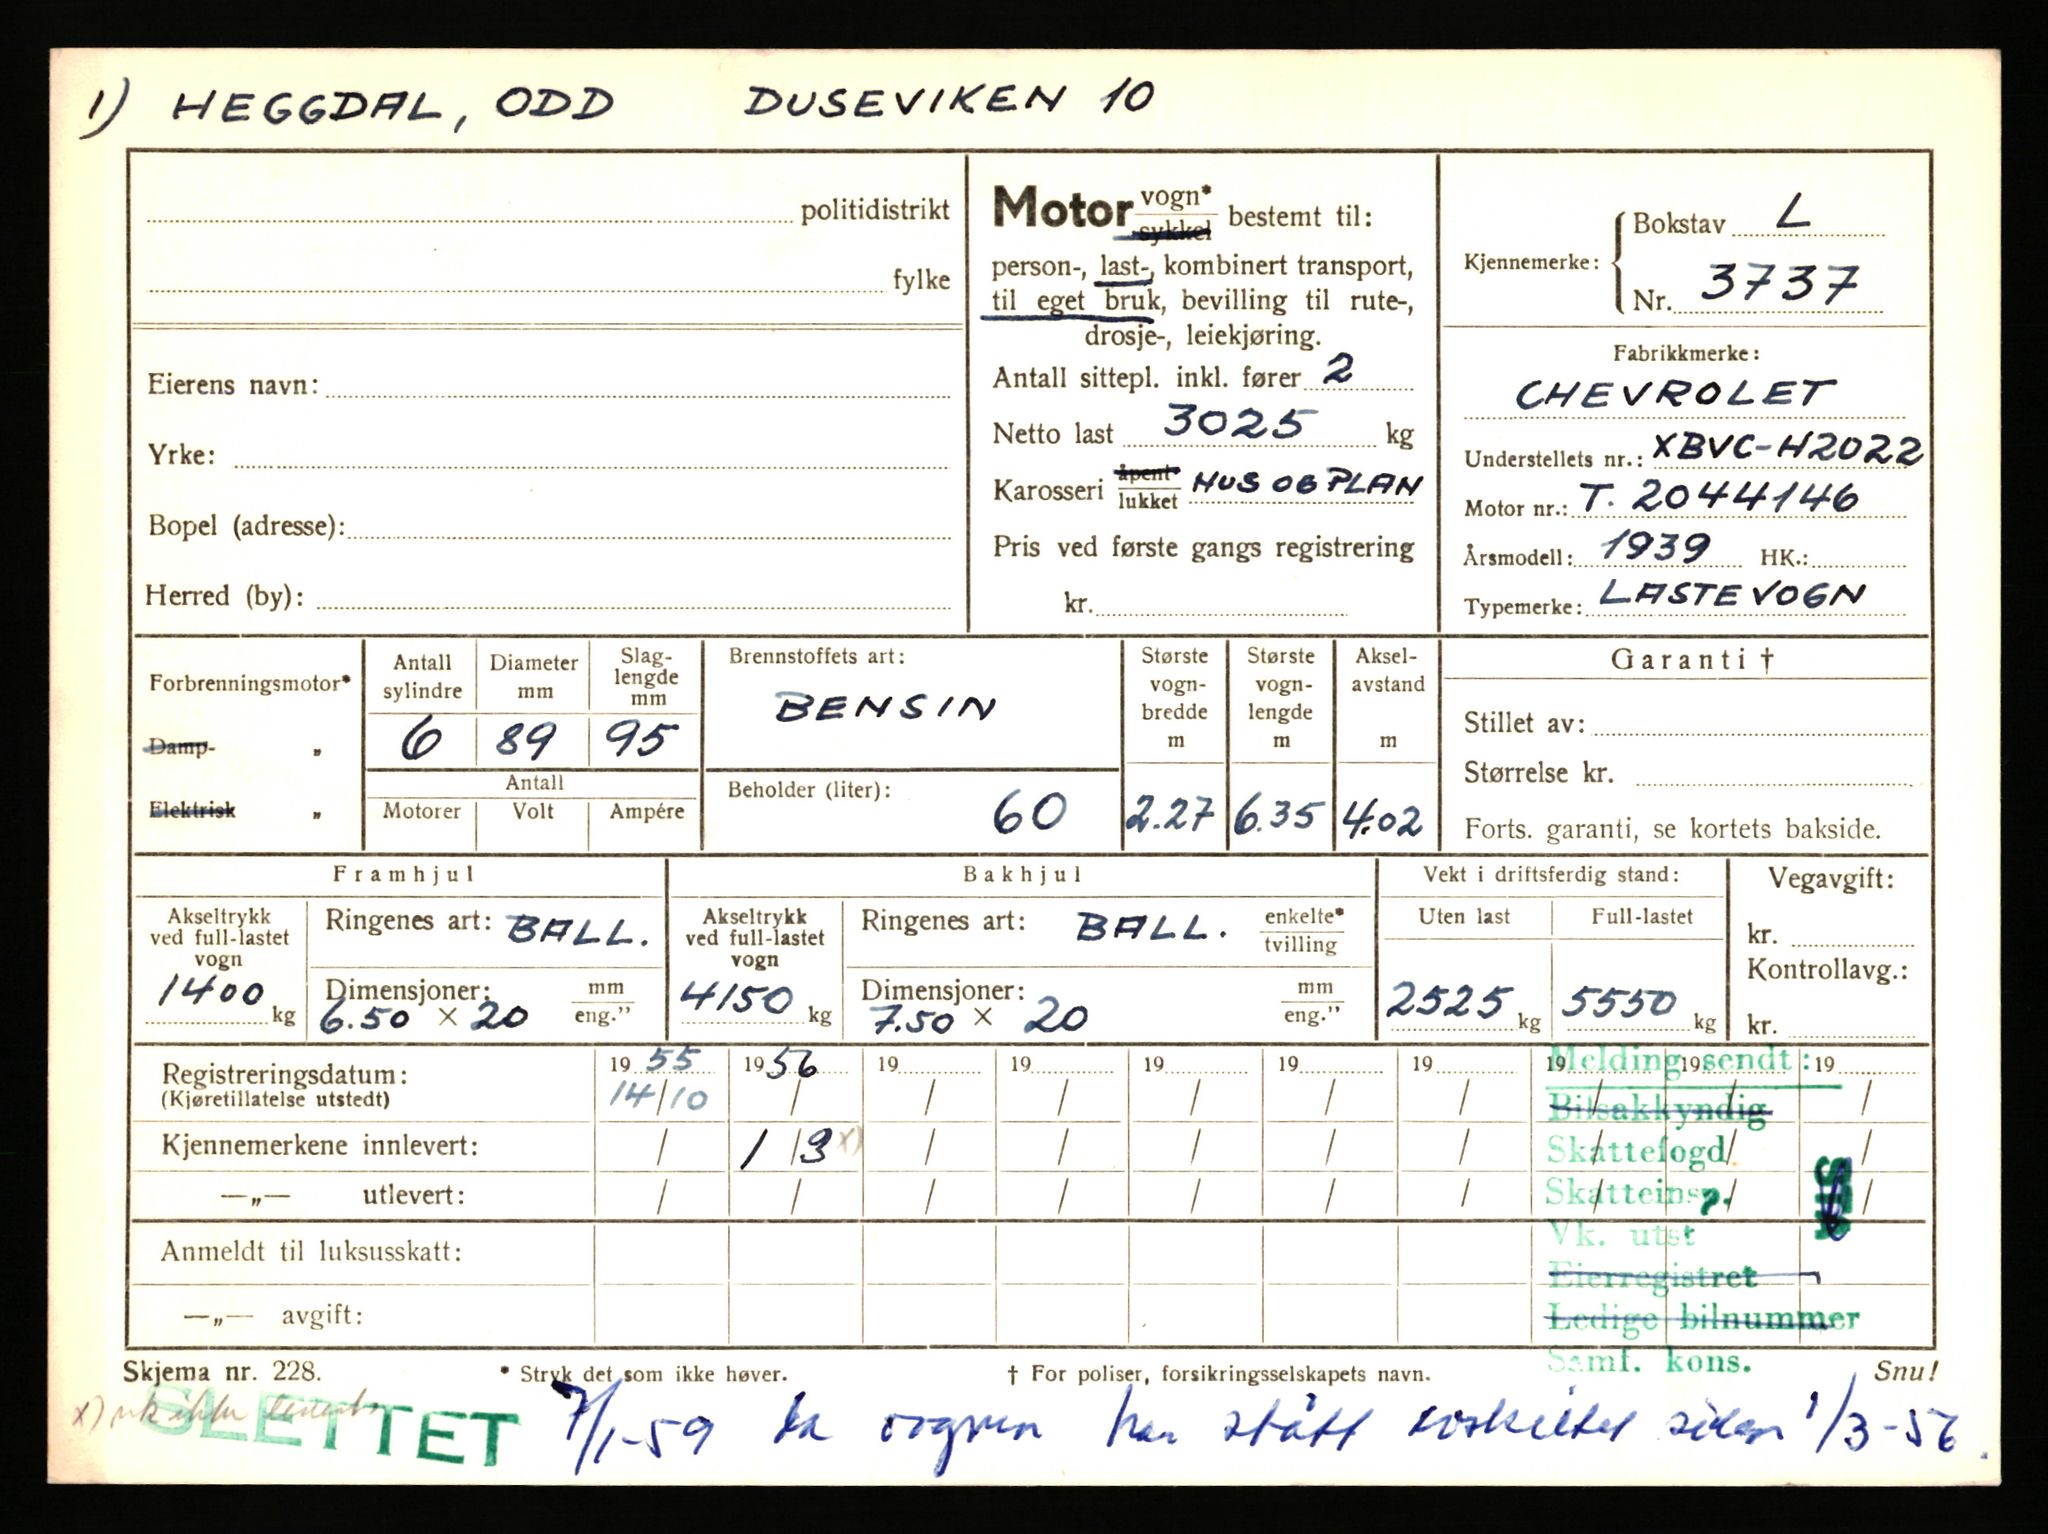 1) HEGGDAL, ODD DUSEVIKEN 10
politidistrikt
fylke
Eierens navn:
Yrke:
Bopel (adresse):
Herred (by):
Motor vogn* sykkel bestemt til:
person-, last-, kombinert transport,
til eget bruk, bevilling til rute-,
drosje-, leiekjøring.
Antall sittepl. inkl. fører 2
Netto last 3025 kg
Karosseri åpent lukket HUS OG PLAN
Pris ved første gangs registrering
kr.
Kjennemerke: Bokstav L
Nr. 3737
Fabrikkmerke:
CHEVROLET
Understellets nr.: XBVC-H2022
Motor nr.: T. 2044146
Årsmodell: 1939 HK.:
Typemerke: LASTEVOGN
Forbrenningsmotor*
Damp- „
Elektrisk „
Antall sylindre Diameter mm Slag-lengde mm
6 89 95
Antall
Motorer Volt Ampére
Brennstoffets art:
BENSIN
Beholder (liter):
60
Største vogn-bredde m
2.27
Største vogn-lengde m
6.35
Aksel-avstand m
4.02
Garanti †
Stillet av:
Størrelse kr.
Forts. garanti, se kortets bakside.
Framhjul
Akseltrykk ved full-lastet vogn
1400 kg
Ringenes art: BALL.
Dimensjoner: mm eng."
6.50 × 20
Bakhjul
Akseltrykk ved full-lastet vogn
4150 kg
Ringenes art: BALL. enkelte* tvilling
Dimensjoner: mm eng."
7.50 × 20
Vekt i driftsferdig stand:
Uten last Full-lastet
2525 kg 5550 kg
Vegavgift:
kr.
Kontrollavg.:
kr.
Registreringsdatum: 19 55 19 56 19 19 19 19 19 19 19 19
(Kjøretillatelse utstedt) 14/10 / / / / / / / / /
Kjennemerkene innlevert: / 1/3 x) / / / / / / / /
—„— utlevert: / / / / / / / / / /
Anmeldt til luksusskatt:
—„— avgift:
Melding sendt:
Bilsakkyndig
Skattefogd
Skatteinsp.
Vk. utst
Eierregistret
Ledige bilnummer
Samf. kons.
Skjema nr. 228. * Stryk det som ikke høver. † For poliser, forsikringsselskapets navn. Snu!
x) ikke
SLETTET 7/1-59 da vognen har stått avskiltet siden 1/3-56.